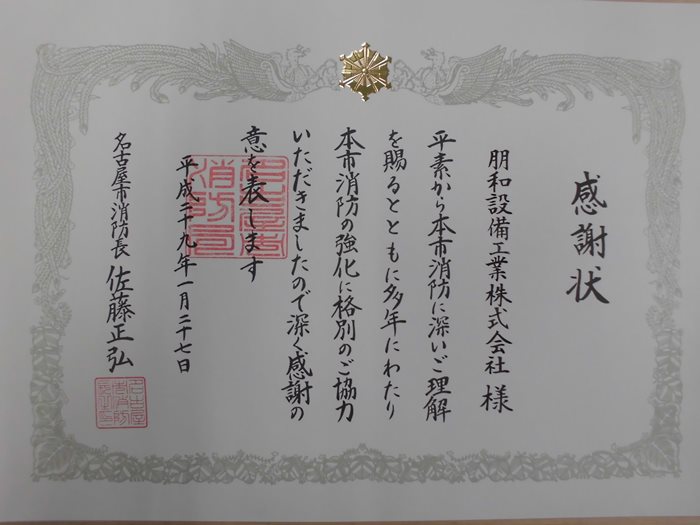 感謝状
朋和設備工業株式会社 様
平素から本市消防に深いご理解
を賜るとともに多年にわたり
本市消防の強化に格別のご協力
いただきましたので深く感謝の
意を表します
平成二十九年一月二十七日
名古屋市消防長 佐藤正弘